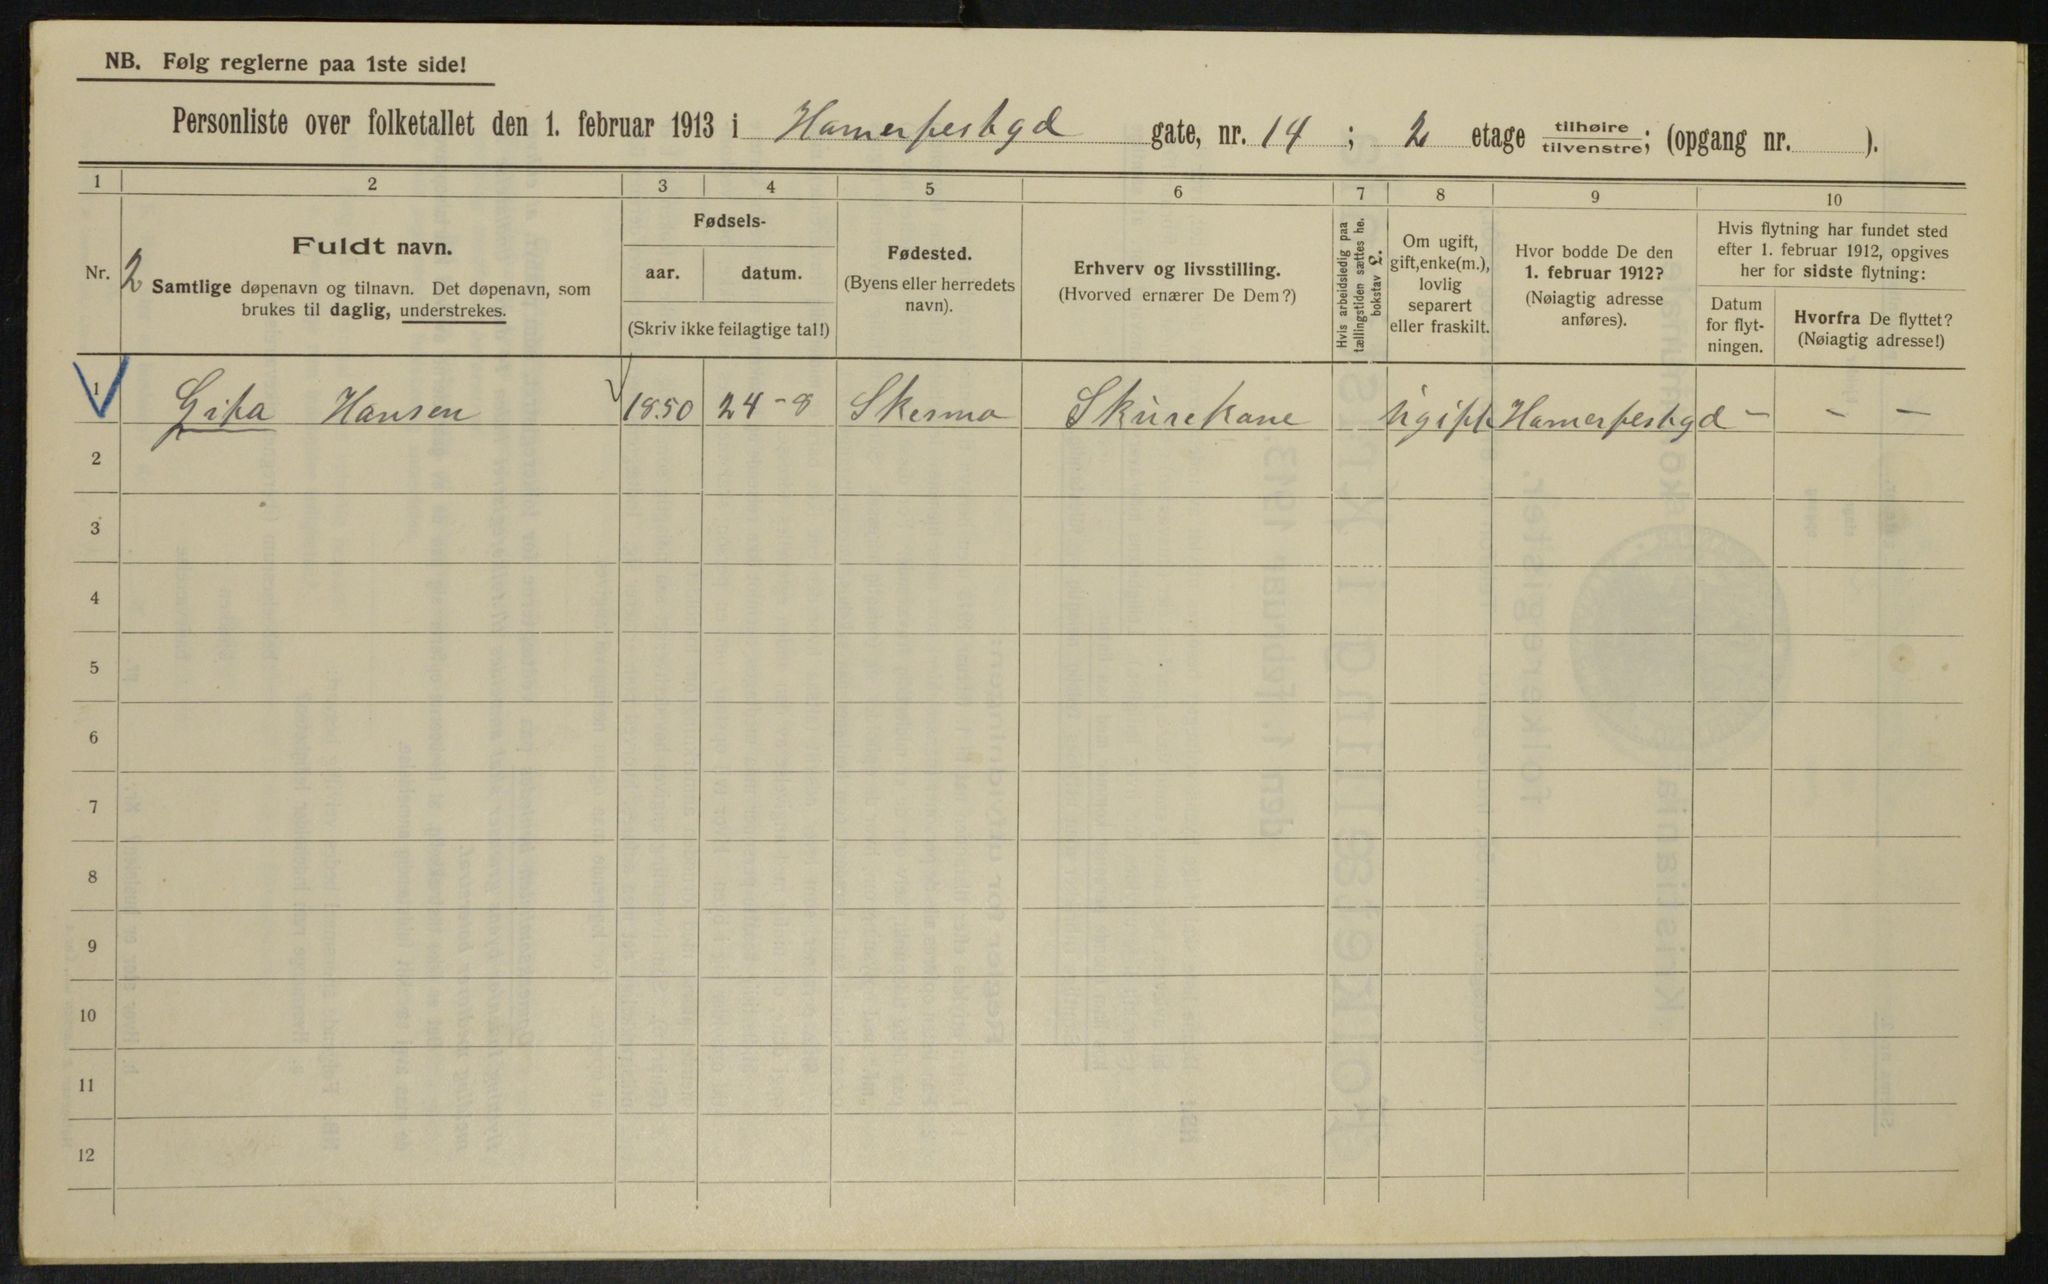 NB. Følg reglerne paa 1ste side!
Personliste over folketallet den 1. februar 1913 i Hamerfestgd gate, nr. 14 ; 2 etage tilhøire tilvenstre; (opgang nr. ).
1 2 3 4 5 6 7 8 9 10
Nr.
2
Fuldt navn.
Samtlige døpenavn og tilnavn. Det døpenavn, som
brukes til daglig, understrekes.
Fødsels-
aar. datum.
(Skriv ikke feilagtige tal!)
Fødested.
(Byens eller herredets
navn).
Erhverv og livsstilling.
(Hvorved ernærer De Dem?)
Hvis arbeidsledig paa
tællingstiden sættes he.
bokstav l.
Om ugift,
gift, enke(m.),
lovlig
separert
eller fraskilt.
Hvor bodde De den
1. februar 1912?
(Nøiagtig adresse
anføres).
Hvis flytning har fundet sted
efter 1. februar 1912, opgives
her for sidste flytning:
Datum
for flyt-
ningen.
Hvorfra De flyttet?
(Nøiagtig adresse!)
1 Gifa Hansen 1850 24-8 Skesmo Skurekone Ugift Hamerfestgd - - -
2
3
4
5
6
7
8
9
10
11
12